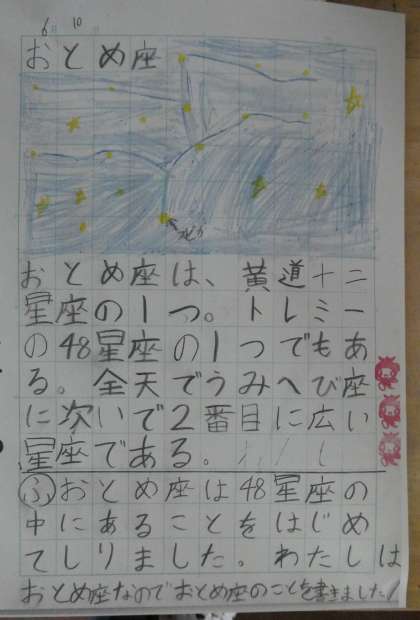 6 10
おとめ座
スピカ
おとめ座は、黄道十二
星座の1つ。トレミー
の48星座の1つでもあ
る。全天でうみへび座
に次いで2番目に広い
星座である。
ふおとめ座は48星座の
中にあることをはじめ
てしりました。わたしは
おとめ座なのでおとめ座のことを書きました!